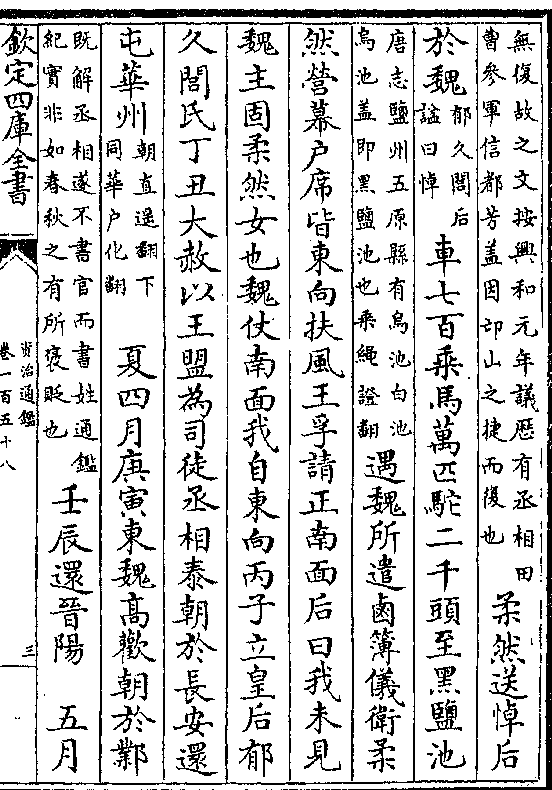 無復故之文按興和元年議歴有丞相田
曹參軍信都芳盖因卭山之捷而復也
柔然送悼后
於魏
郁久閭后
諡曰悼
車七百乘馬萬匹駝二千頭至黑鹽池
唐志鹽州五原縣有烏池白池
烏池盖即黑鹽池也乘繩證翻
遇魏所遣鹵簿儀衛柔
然營幕户席皆東向扶風王孚請正南面后曰我未見
魏主固柔然女也魏仗南面我自東向丙子立皇后郁
久閭氏丁丑大赦以王盟為司徒丞相泰朝於長安還
屯華州
朝直遥翻下
同華户化翻
夏四月庚寅東魏高歡朝於鄴
既解丞相遂不書官而書姓通鑑
紀實非如春秋之有所褒貶也
壬辰還晉陽
五月
欽定四庫全書
資治通鑑
卷一百五十八
三